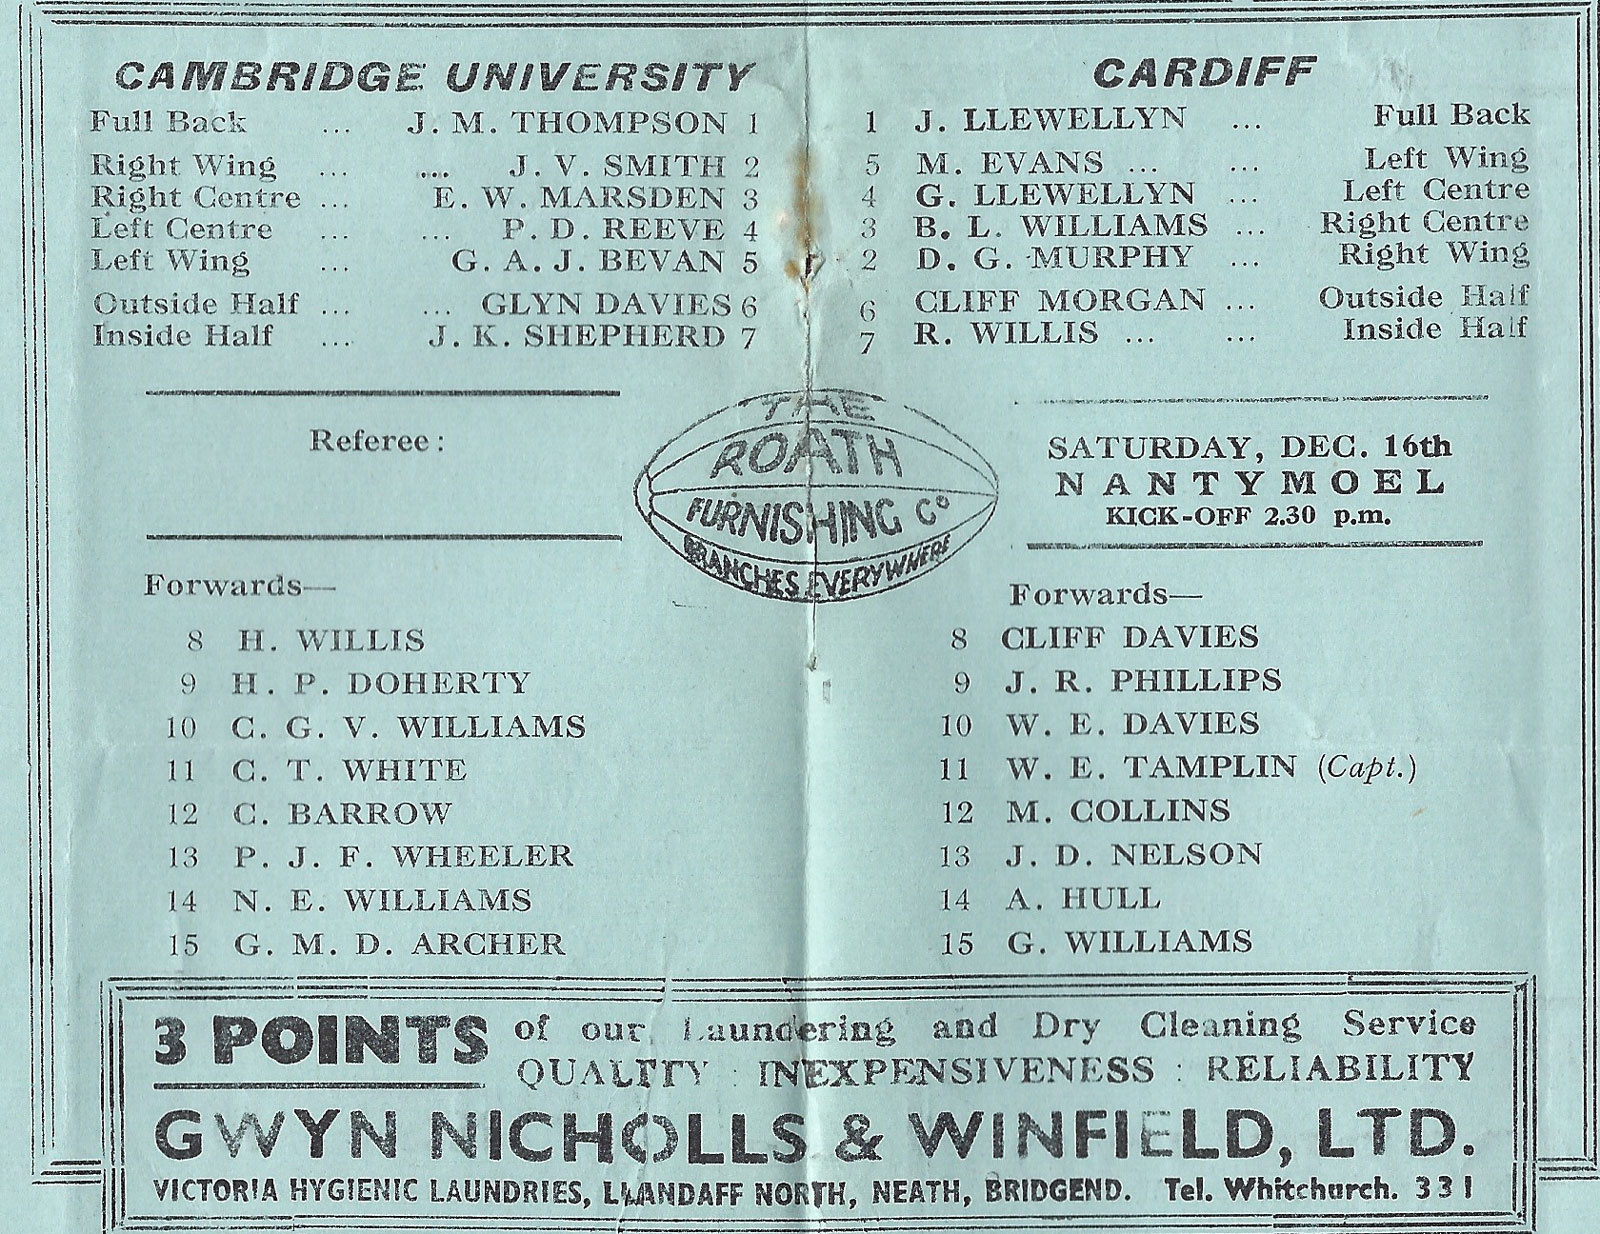 CAMBRIDGE UNIVERSITY
Full Back ... J. M. THOMPSON 1
Right Wing ... .... J. V. SMITH 2
Right Centre ... E. W. MARSDEN 3
Left Centre ... ... P. D. REEVE 4
Left Wing ... G. A. J. BEVAN 5
Outside Half ... ... GLYN DAVIES 6
Inside Half ... J. K. SHEPHERD 7
Referee:
Forwards—
8 H. WILLIS
9 H. P. DOHERTY
10 C. G. V. WILLIAMS
11 C. T. WHITE
12 C. BARROW
13 P. J. F. WHEELER
14 N. E. WILLIAMS
15 G. M. D. ARCHER
THE
ROATH
FURNISHING Co
BRANCHES EVERYWHERE
CARDIFF
1 J. LLEWELLYN ... Full Back
5 M. EVANS ... ... Left Wing
4 G. LLEWELLYN ... Left Centre
3 B. L. WILLIAMS ... Right Centre
2 D. G. MURPHY ... Right Wing
6 CLIFF MORGAN ... Outside Half
7 R. WILLIS ... ... Inside Half
SATURDAY, DEC. 16th
NANTYMOEL
KICK-OFF 2.30 p.m.
Forwards—
8 CLIFF DAVIES
9 J. R. PHILLIPS
10 W. E. DAVIES
11 W. E. TAMPLIN (Capt.)
12 M. COLLINS
13 J. D. NELSON
14 A. HULL
15 G. WILLIAMS
3 POINTS of our Laundering and Dry Cleaning Service
QUALITY : INEXPENSIVENESS : RELIABILITY
GWYN NICHOLLS & WINFIELD, LTD.
VICTORIA HYGIENIC LAUNDRIES, LLANDAFF NORTH, NEATH, BRIDGEND. Tel. Whitchurch. 331